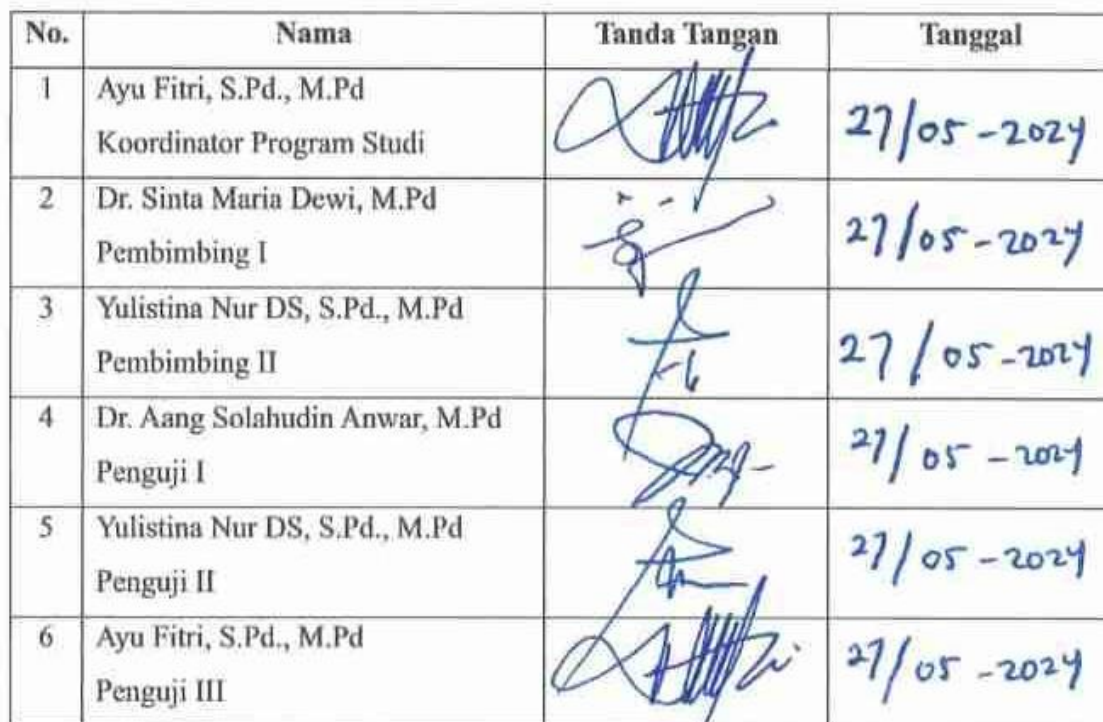 No. Nama Tanda Tangan Tanggal
1 Ayu Fitri, S.Pd., M.Pd
Koordinator Program Studi
27/05-2024
2 Dr. Sinta Maria Dewi, M.Pd
Pembimbing I
27/05-2024
3 Yulistina Nur DS, S.Pd., M.Pd
Pembimbing II
27/05-2024
4 Dr. Aang Solahudin Anwar, M.Pd
Penguji I
27/05-2024
5 Yulistina Nur DS, S.Pd., M.Pd
Penguji II
27/05-2024
6 Ayu Fitri, S.Pd., M.Pd
Penguji III
27/05-2024